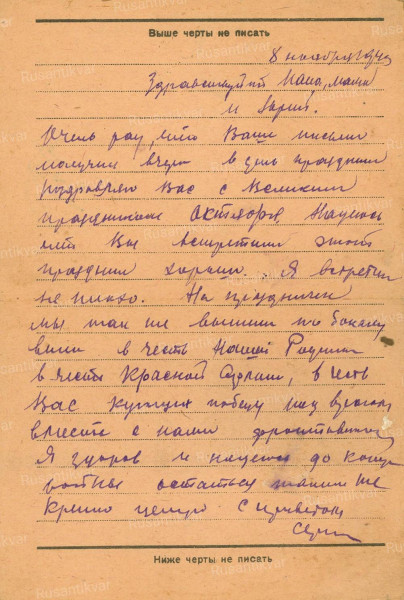 Выше черты не писать
8 ноября
Здравствуйте Папа, мама
и
Очень рад, что Ваши письма
получил вчера в день праздника
поздравляю Вас с Великим
праздником Октября, Надеюсь
что Вы встретили этот
праздник хорошо. Я встретил
не плохо. На празднике
мы так же выпили по бокалу
вина в честь Нашей Родины
в честь Красной Армии, в честь
Вас победу над врагом
вместе с нами фронтовиками
Я здоров и надеюсь до конца
войны остаться таким же
Крепко целую с приветом
Ниже черты не писать
Rusantikvar